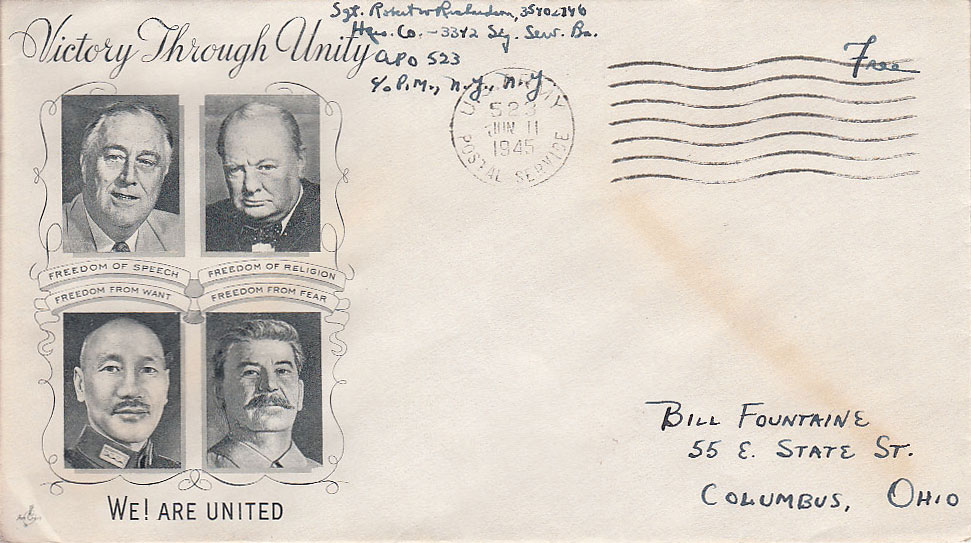 Victory Through Unity
Sgt. Robert W Richardson, 35402746
Hqrs. Co. - 3342 Sig. Serv. Bn.
APO 523
c/o P.M., N.Y., N.Y
Free
U.S. ARMY
523
JUN 11
1945
POSTAL SERVICE
FREEDOM OF SPEECH
FREEDOM OF RELIGION
FREEDOM FROM WANT
FREEDOM FROM FEAR
BILL FOUNTAINE
55 E. STATE ST.
COLUMBUS, OHIO
WE! ARE UNITED